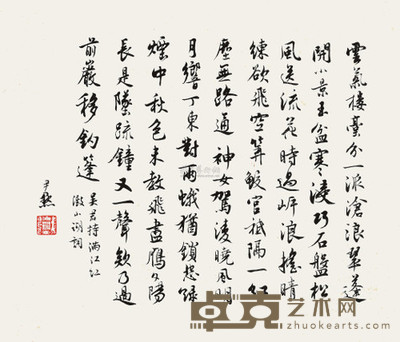 雲氣樓臺分一派滄浪翠蓬
開小景玉盆寒浸巧石盤松
風送流花時過岸浪搖晴
練欲飛空算鮫宮祇隔一紅
塵無路通 神女駕凌曉風明
月響丁東對兩蛾猶鎖怨綠
煙中秋色未教飛盡雁夕陽
長是墜疏鐘又一聲欸乃過
前巖移釣篷
吳君特滿江紅
澱山湖詞
尹默
卓克艺术网
zhuokearts.com